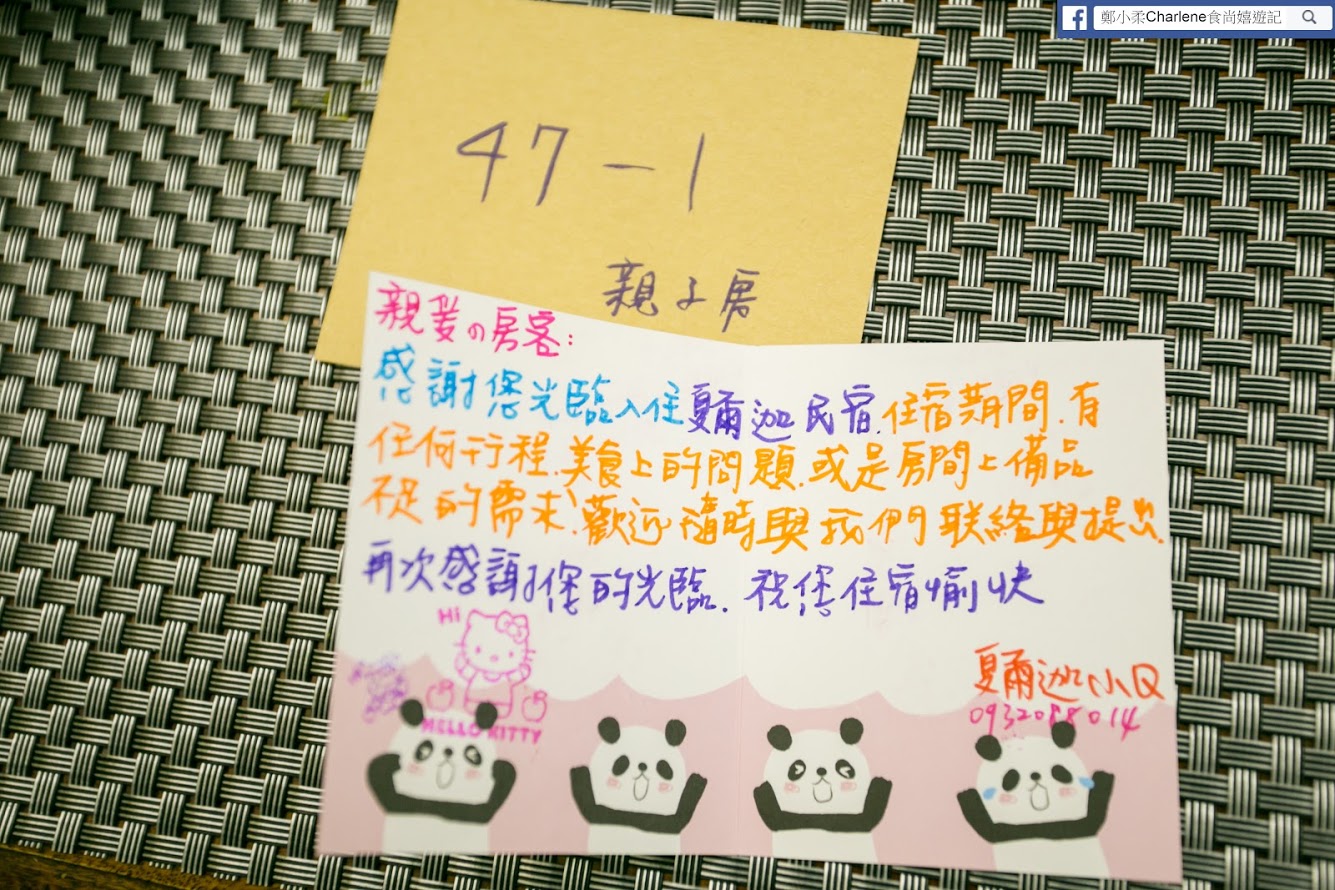 鄭小柔Charlene食尚嬉遊記
47-1
親子房
親愛の房客:
感謝您光臨入住夏爾迦民宿.住宿期間.有
任何行程.美食上的問題.或是房間上備品
不足的需求.歡迎隨時與我們联絡與提出.
再次感謝您的光臨.祝您住宿愉快
Hi
HELLO KITTY
夏爾迦小Q
0932088014